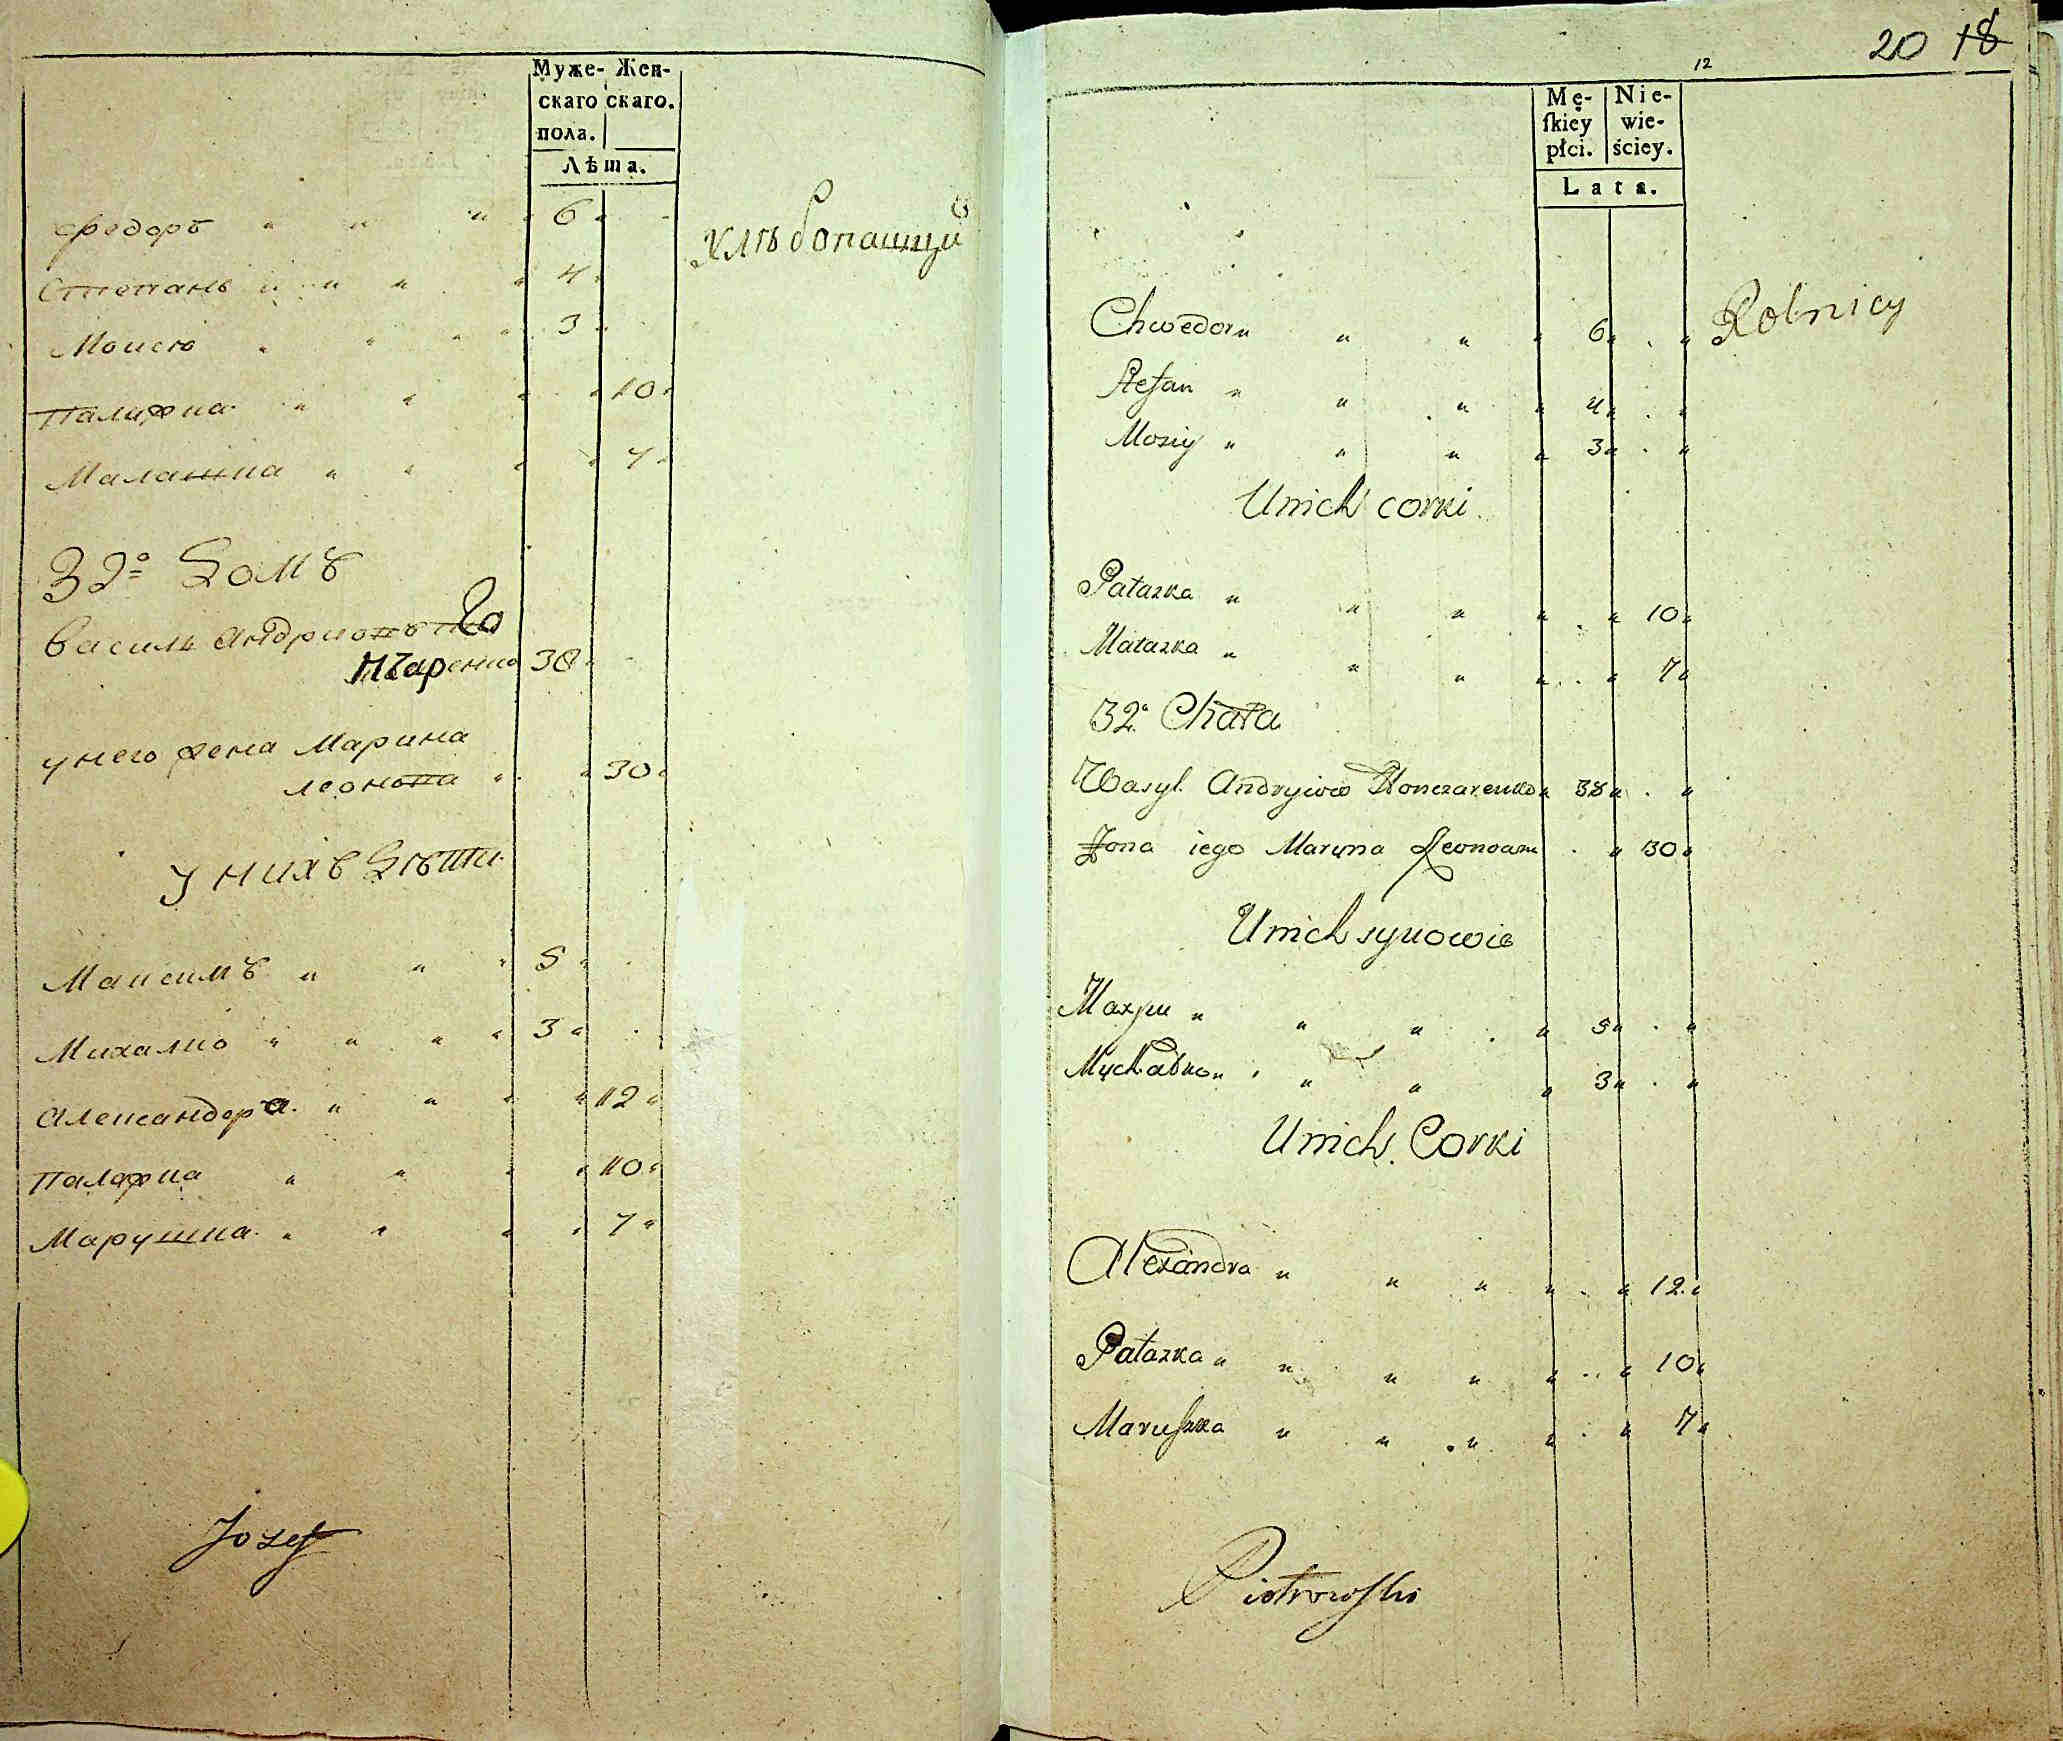 Муже- Жен-
скаго скаго.
пола.
Лѣта.
Федоръ " " " " 6 "
хлѣбопашцй
Степанъ " " " " 4 "
Моисѣ " " " " 3 "
Палажка " " " " 10 "
Малашка " " " " 7 "
32º Домъ
Василь Андриовъ Го
нчаренко 38 "
у него жена Марина
леонова " " 30 "
У нихъ Дѣти
Максимъ " " " 5 "
Михалко " " " " 3 "
Александра " " " " 12 "
Палажка " " " " 10 "
Марушка " " " " 7 "
Jozef
20 18
12
Mę- Nie-
ſkiey wie-
płci. ściey.
Lata.
Chwedor " " " " 6 " . "
Rolnicy
Stefan " " " " 4 " . "
Mosiy " " " " 3 " . "
U nich corki
Pałazka " " " " . " 10 "
Małazka " " " " . " 7 "
32º Chata
Wasyl Andryiow Honczarenko " 38 " . "
Żona iego Maryna Leonowa . " 30 "
U nich synowie
Maxym " " " . " 5 " . "
Mychałko " " " " 3 " . "
U nich Corki
Alexandra " " " " . " 12 "
Pałazka " " " " " . " 10 "
Maruſzka " " " " . " 7 "
Piotrowſki